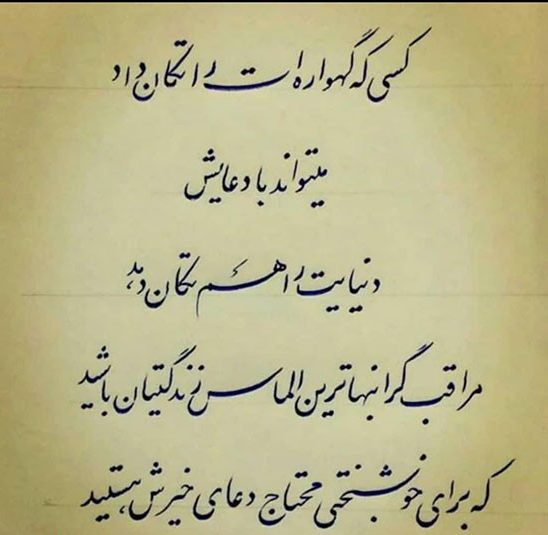 کسی که گهواره ات را تکان داد
میتواند با دعایش
دنیایت را هم تکان دهد
مراقب گرانبهاترین الماس زندگیتان باشید
که برای خوشبختی محتاج دعای خیرش هستید